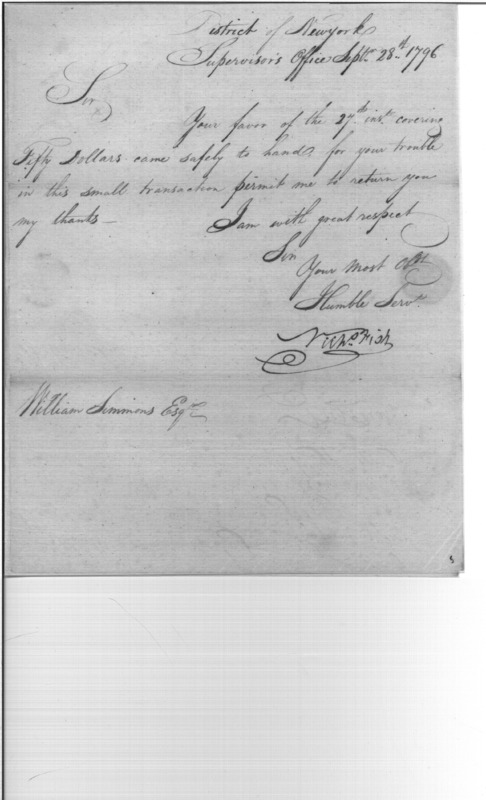 District of Newyork
Supervisor's Office Septr. 28th. 1796
Sir,
Your favor of the 27th. inst. covering
Fifty Dollars came safely to hand, for your trouble
in this small transaction permit me to return you
my thanks —
I am with great respect
Sir
Your Most Obt.
Humble Servt.
Nichs. Fish
William Simmons Esqr.